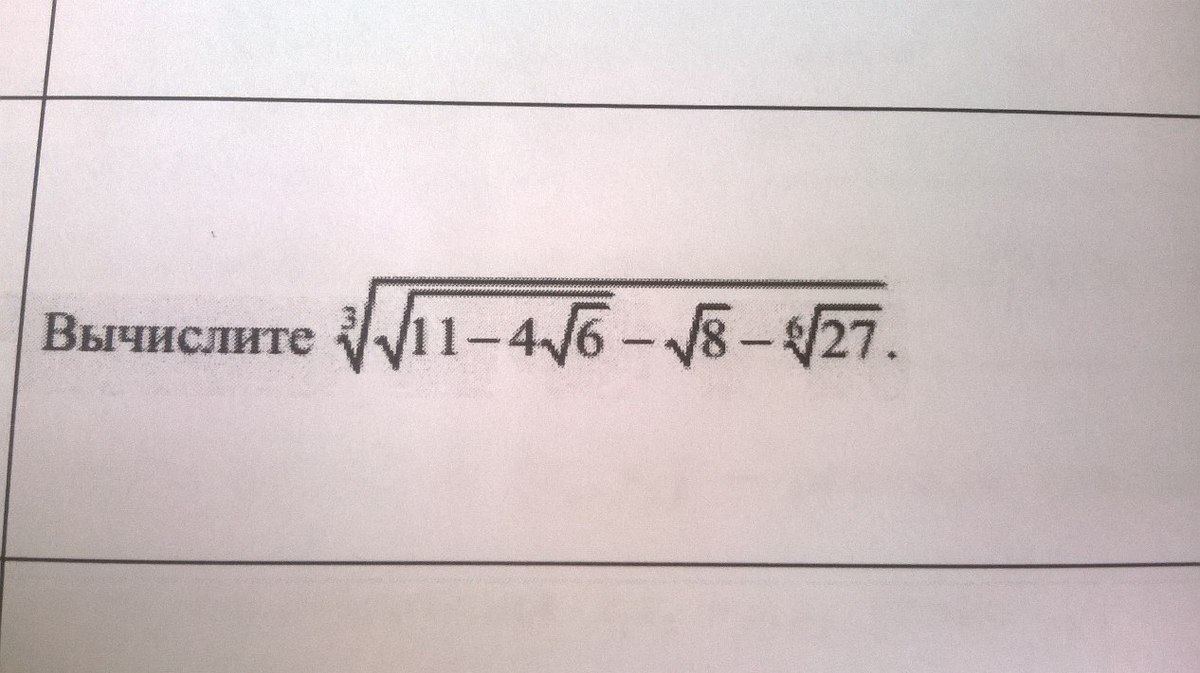 Вычислите ∛(√(11−4√6) − √8 − ⁶√27).